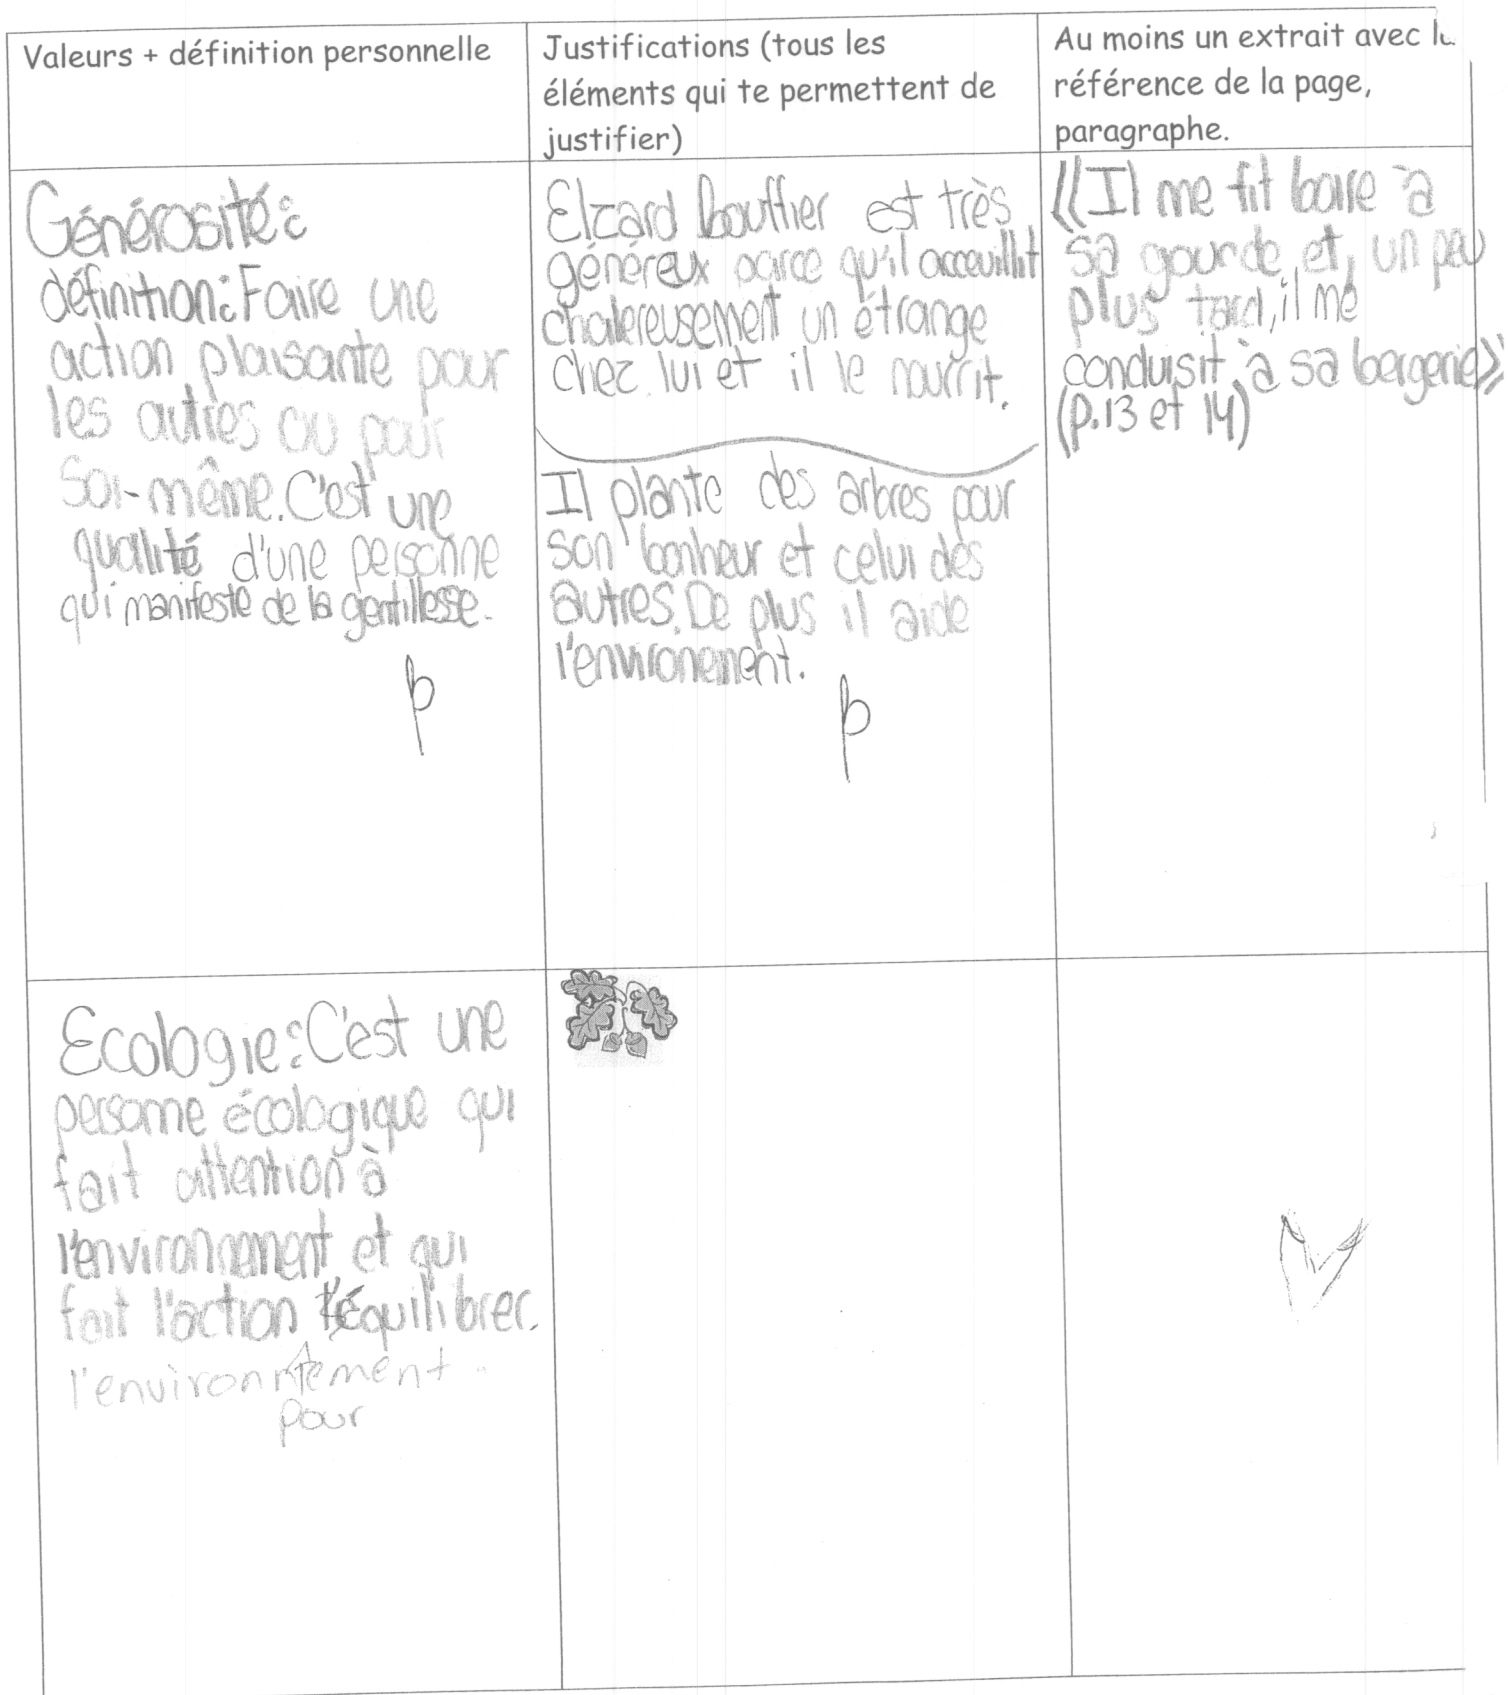 Valeurs + définition personnelle
Justifications (tous les
éléments qui te permettent de
justifier)
Au moins un extrait avec la
référence de la page,
paragraphe.
Générosité:
définition: Faire une
action plaisante pour
les autres ou pour
soi-même. C'est une
qualité d'une personne
qui manifeste de la gentillesse.
Elzard Bouffier est très
généreux parce qu'il acceuillit
chalereusement un étrange
chez lui et il le nourrit.
Il plante des arbres pour
son bonheur et celui des
autres. De plus il aide
l'environement.
«Il me fit boire à
sa gourde et, un peu
plus tard, il me
conduisit à sa bergerie»
(p.13 et 14)
Ecologie: C'est une
personne écologique qui
fait attention à
l'environnement et qui
fait l'action l'équilibrer.
l'environnement.
pour